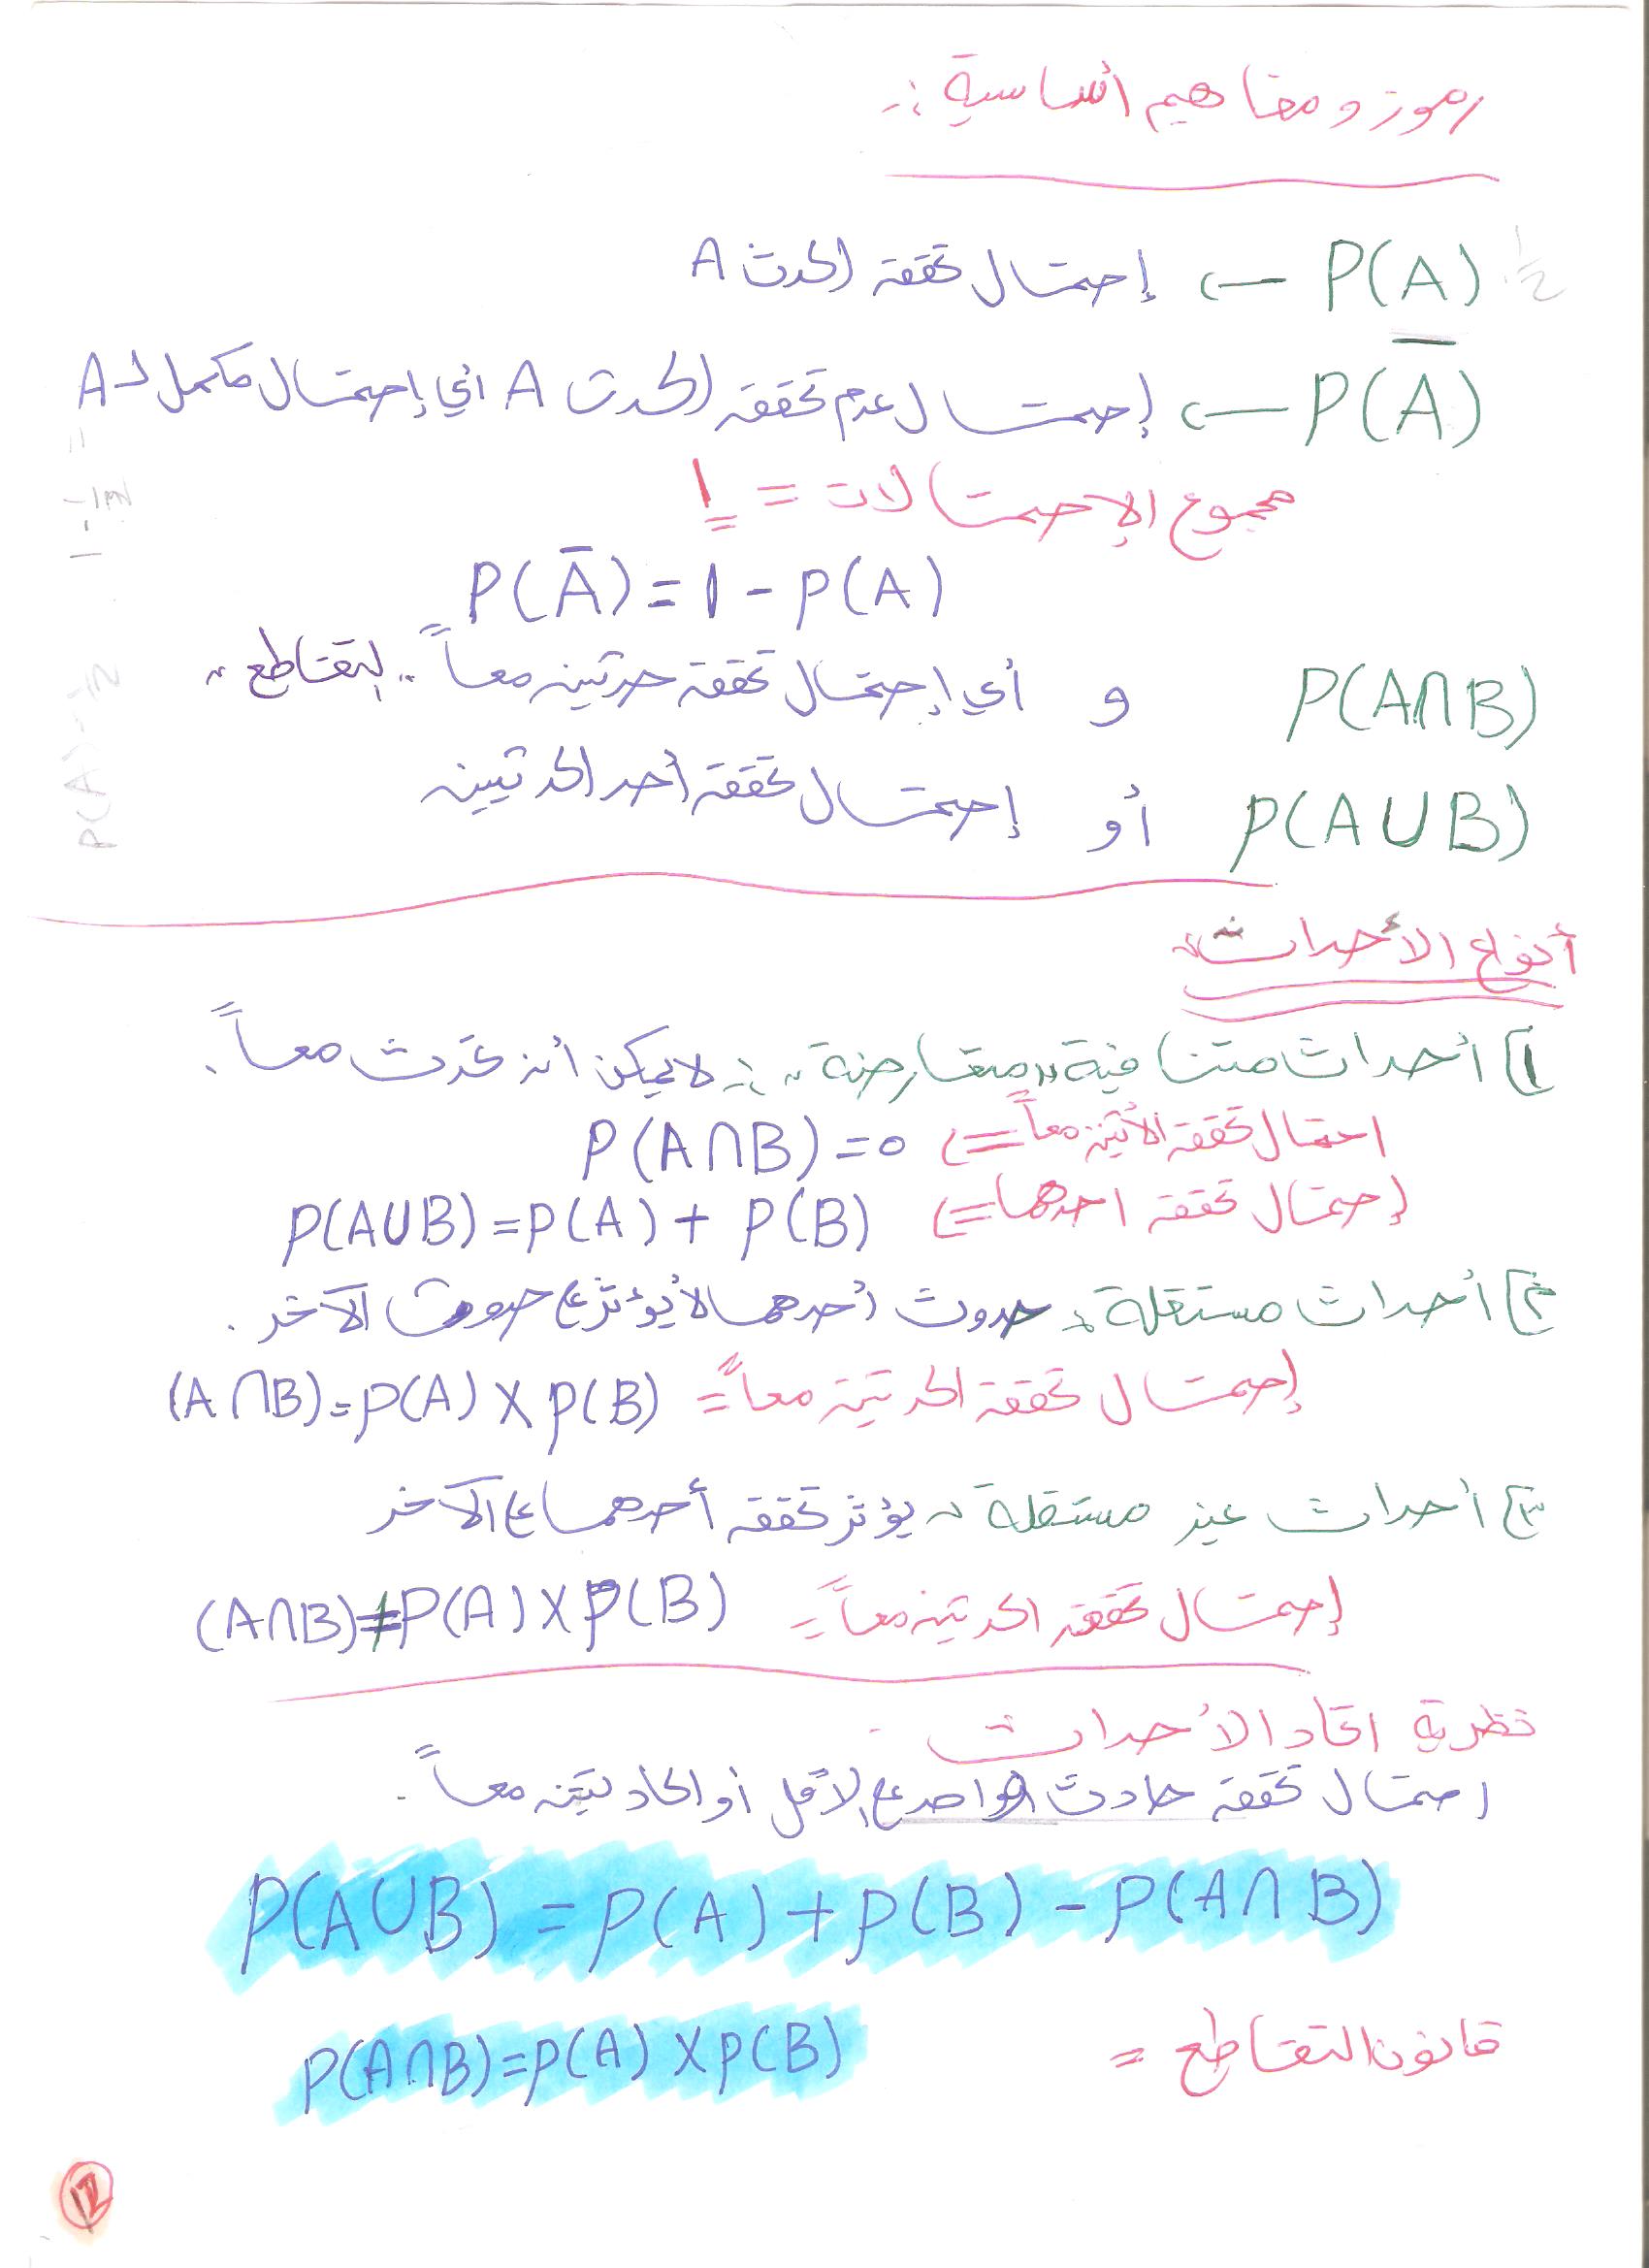 رموز ومفاهيم أساسية :-
P(A) ← إحتمال تحقق الحدث A
P(Ā) ← إحتمال عدم تحقق الحدث A أي إحتمال مكمل لـ A
مجموع الإحتمالات = 1
P(Ā) = 1 - P(A)
P(A∩B) و أي إحتمال تحقق حدثين معاً "لتقاطع"
P(A∪B) أو إحتمال تحقق أحد الحدثين
أنواع الأحداث:
1] أحداث متنافية "متعارضة" :- لا يمكن أن تحدث معاً.
احتمال تحقق الأثنين معاً <= P(A∩B) = 0
إحتمال تحقق احدهما <= P(A∪B) = P(A) + P(B)
٢] أحداث مستقلة : حدوث أحدهما لا يؤثر ع حدوث الآخر .
إحتمال تحقق الحدثين معاً = (A∩B) = P(A) X P(B)
٣] أحداث غير مستقلة ~ يؤثر تحقق أحدهما ع الآخر
إحتمال تحقق الحدثين معاً = (A∩B) ≠ P(A) X P(B)
نظرية اتحاد الأحداث -
احتمال تحقق حادث واحد ع الأقل أو الحادثين معاً .
P(A∪B) = P(A) + P(B) - P(A∩B)
قانون التقاطع = P(A∩B) = P(A) X P(B)